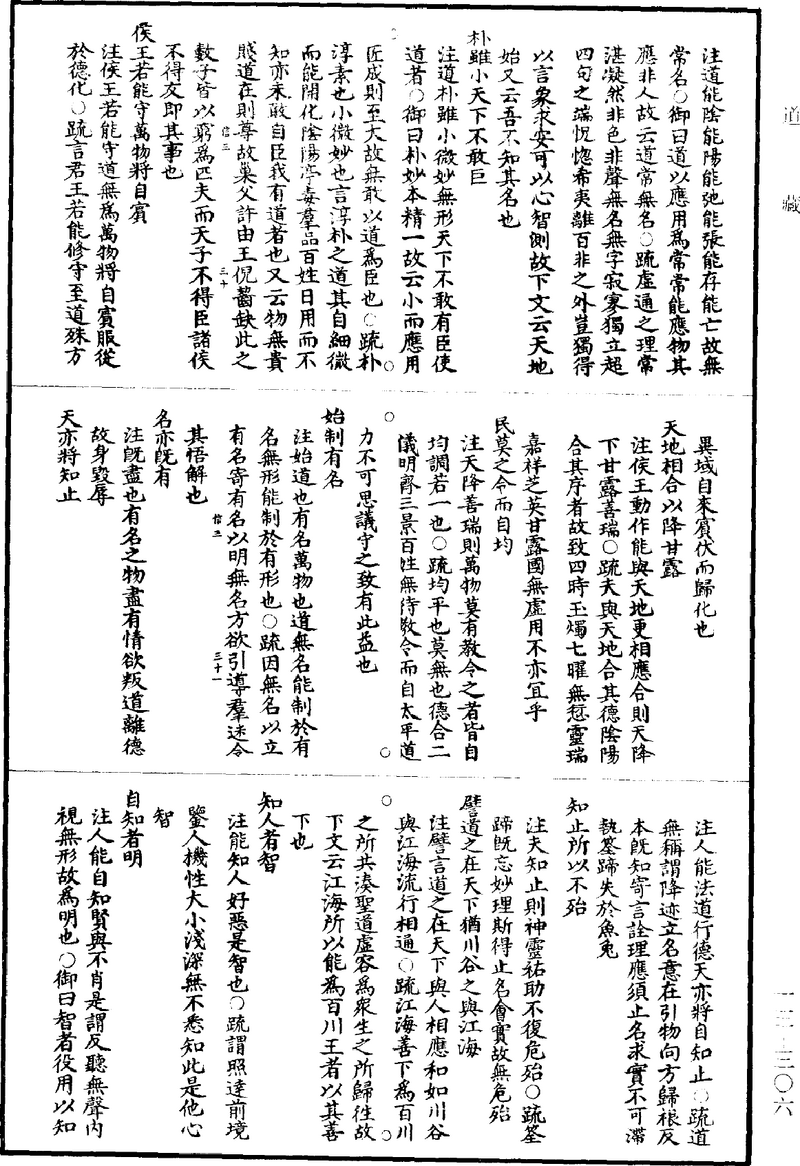 道藏
注道能陰能陽能弛能張能存能亡故無
常名○御曰道以應用爲常常能應物其
應非人故云道常無名○疏虛通之理常
湛凝然非色非聲無名無字寂寥獨立超
四句之端恍惚希夷離百非之外豈獨得
以言象求安可以心智測故下文云天地
始又云吾不知其名也
朴雖小天下不敢臣
注道朴雖小微妙無形天下不敢有臣使
道者○御曰朴妙本精一故云小而應用
匠成則至大故無敢以道爲臣也○疏朴
淳素也小微妙也言淳朴之道其自細微
而能開化陰陽渟毒羣品百姓日用而不
知亦未敢自臣我有道者也又云物無貴
賤道在則尊故巢父許由王倪齧缺此之
信三 三十
數子皆以窮爲匹夫而天子不得臣諸侯
不得友即其事也
侯王若能守萬物將自賓
注侯王若能守道無爲萬物將自賓服從
於德化○疏言君王若能修守至道殊方
異域自來賓伏而歸化也
天地相合以降甘露
注侯王動作能與天地更相應合則天降
下甘露善瑞○疏夫與天地合其德陰陽
合其序者故致四時玉燭七曜無愆靈瑞
嘉祥芝英甘露國無虛用不亦宜乎
民莫之令而自均
注天降善瑞則萬物莫有教令之者皆自
均調若一也○疏均平也莫無也德合二
儀明齊三景百姓無待教令而自太平道
力不可思議守之致有此益也
始制有名
注始道也有名萬物也道無名能制於有
名無形能制於有形也○疏因無名以立
有名寄有名以明無名方欲引導羣迷令
信三 三十一
其悟解也
名亦既有
注既盡也有名之物盡有情欲叛道離德
故身毀辱
天亦將知止
注人能法道行德天亦將自知止○疏道
無稱謂降迹立名意在引物向方歸根反
本既知寄言詮理應須止名求實不可滯
執筌蹄失於魚兔
知止所以不殆
注夫知止則神靈祐助不復危殆○疏筌
蹄既忘妙理斯得止名會實故無危殆
譬道之在天下猶川谷之與江海
注譬言道之在天下與人相應和如川谷
與江海流行相通○疏江海善下爲百川
之所共湊聖道虛容爲衆生之所歸往故
下文云江海所以能爲百川王者以其善
下也
知人者智
注能知人好惡是智也○疏謂照達前境
鑒人機性大小淺深無不悉知此是他心
智
自知者明
注人能自知賢與不肖是謂反聽無聲內
視無形故爲明也○御曰智者役用以知
一三－三〇六